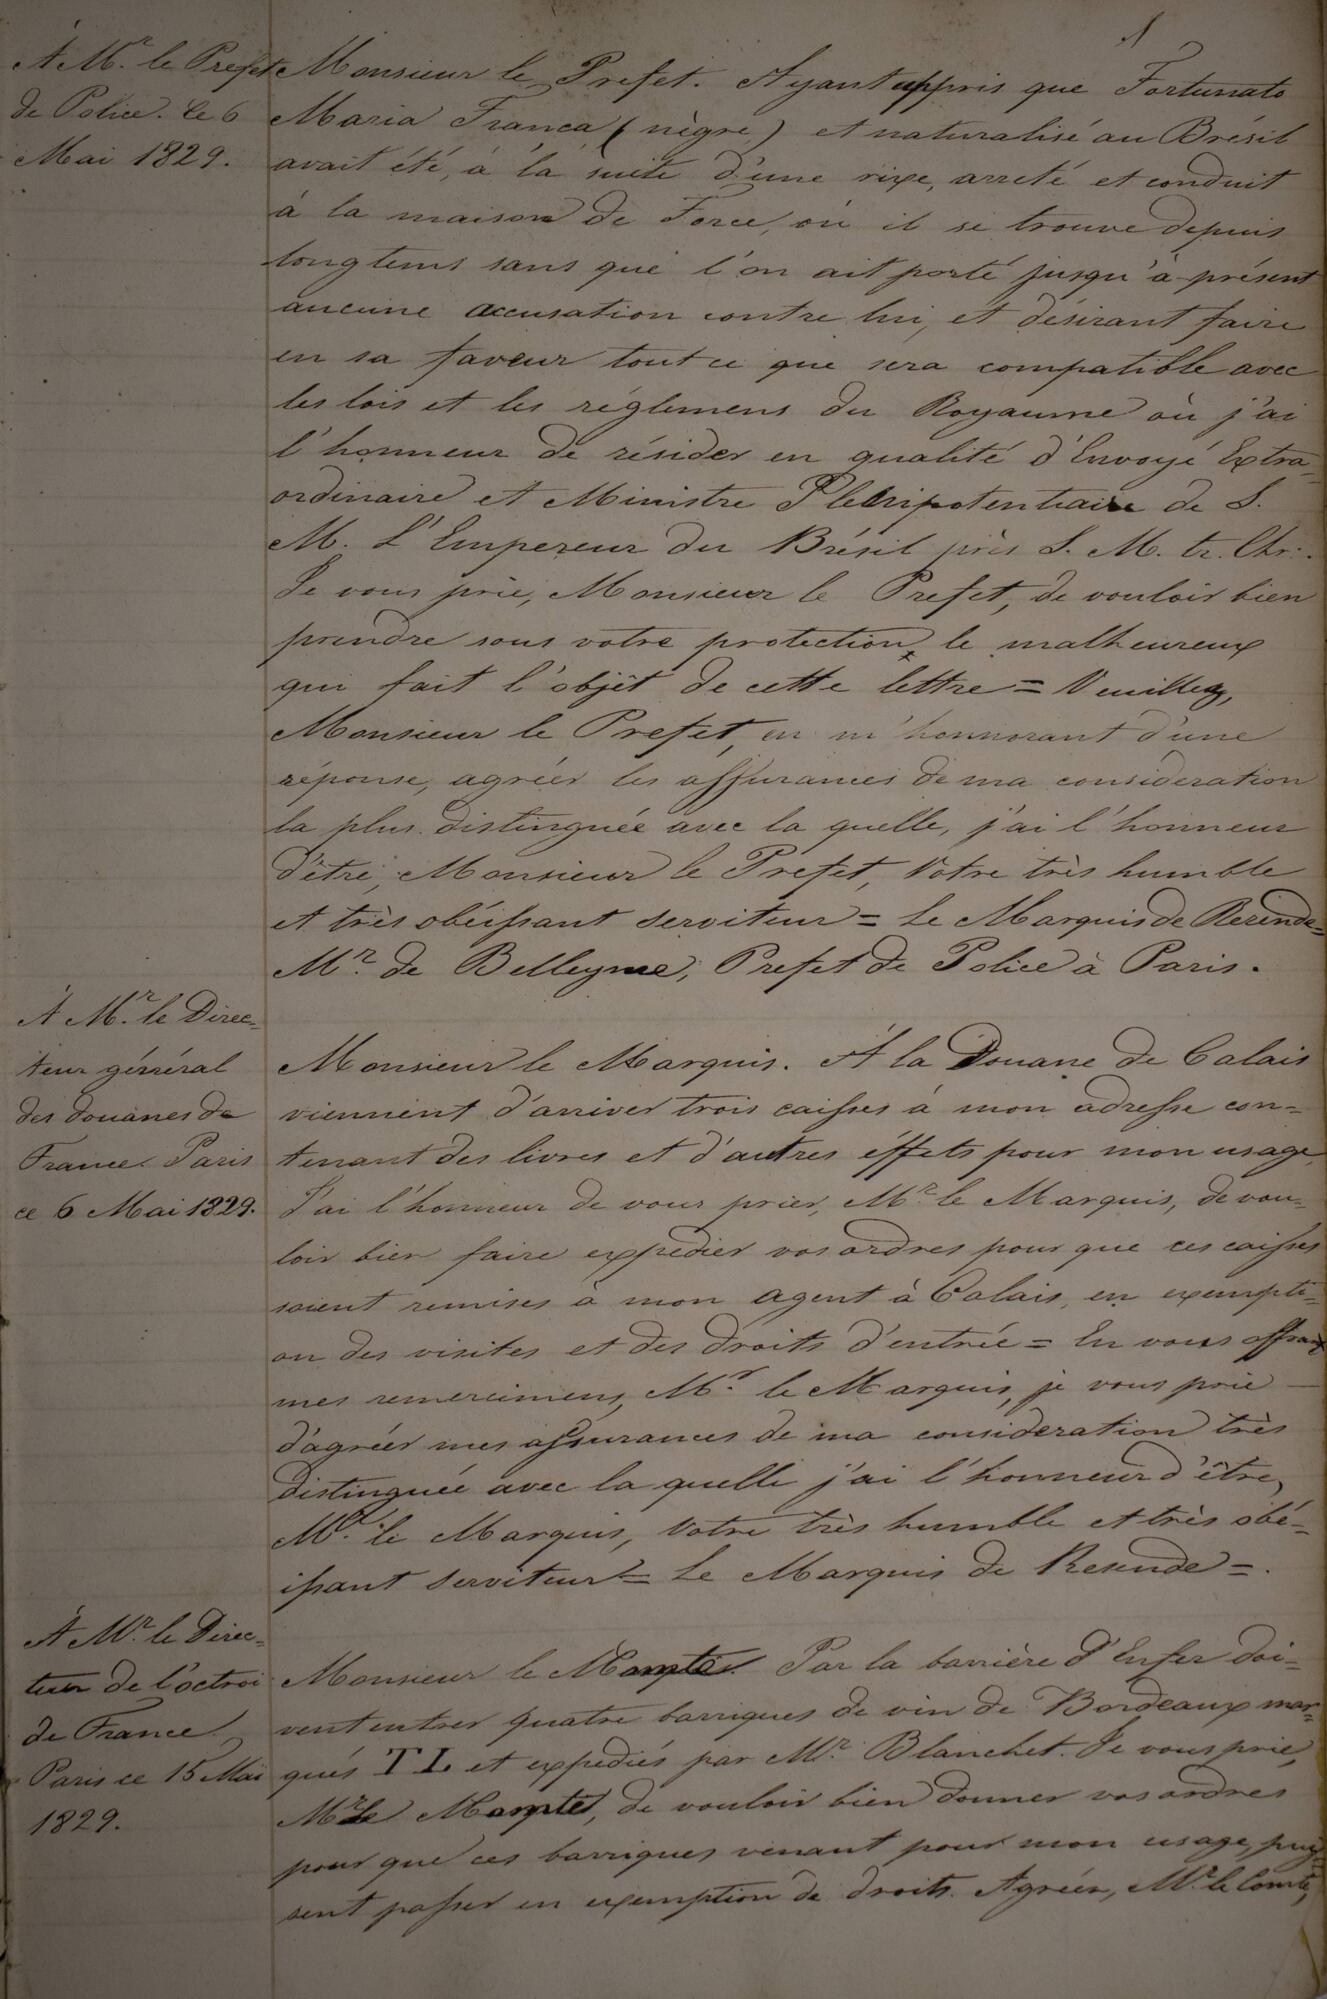 1
À Mr. le Prefet
de Police. Le 6
Mai 1829.
Monsieur le Prefet. Ayant appris que Fortunato
Maria Franca (nègre) et naturalisé au Brésil
avait été, à la suite d'une rixe, arreté et conduit
à la maison de Force, où il se trouve depuis
longtems sans que l'on ait porté jusqu'à présent
aucune accusation contre lui, et désirant faire
en sa faveur tout ce que sera compatible avec
les lois et les réglemens du Royaume où j'ai
l'honneur de résider en qualité d'Envoyé Extra=
ordinaire et Ministre Plenipotentiaire de S.
M. L'Empereur du Brésil près S. M. tr. Chr.
Je vous prie, Monsieur le Prefet, de vouloir bien
prendre sous votre protection le malheureux
qui fait l'objèt de cette lettre = Veuillez,
Monsieur le Prefet, en m'honnorant d'une
réponse, agréer les assurances de ma consideration
la plus distinguée avec la quelle, j'ai l'honneur
d'être, Monsieur le Prefet, Votre très humble
et très obéissant serviteur = Le Marquis de Rezende=
Mr. de Belleyme, Prefet de Police à Paris.
À Mr. le Direc=
teur général
des douanes de
France. Paris
ce 6 Mai 1829.
Monsieur le Marquis. À la Douane de Calais
viennent d'arriver trois caisses à mon adresse con=
tenant des livres et d'autres éffets pour mon usage,
J'ai l'honneur de vous prier, Mr. le Marquis, de vou=
loir bien faire expedier vos ordres pour que ces caisses
soient remises à mon agent à Calais, en exempti=
on des visites et des droits d'entrée = En vous offrant
mes remercimens, Mr. le Marquis, je vous prie
d'agréer mes assurances de ma consideration très
distinguée avec la quelle j'ai l'honneur d'être,
Mr. le Marquis, Votre très humble et très obé=
issant serviteur = Le Marquis de Resende =.
À Mr. le Direc=
teur de l'octroi
de France
Paris ce 15 Mai
1829.
Monsieur le Comte. Par la barrière d'Enfer doi=
vent entrer quatre barriques de vin de Bordeaux mar=
qués TL et expediés par Mr. Blanchet. Je vous prie,
Mr. le Comte, de vouloir bien donner vos ordres
pour que ces barriques venant pour mon usage, puis
sent passer en exemption de droits. Agréer, Mr. le Comte,